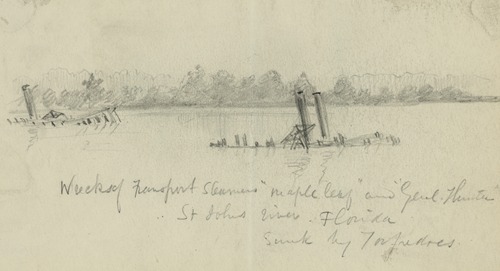 Wrecks of Transport Steamers "Maple leaf" and "Genl. Hunter
St Johns river. Florida
Sunk by Torpedoes.